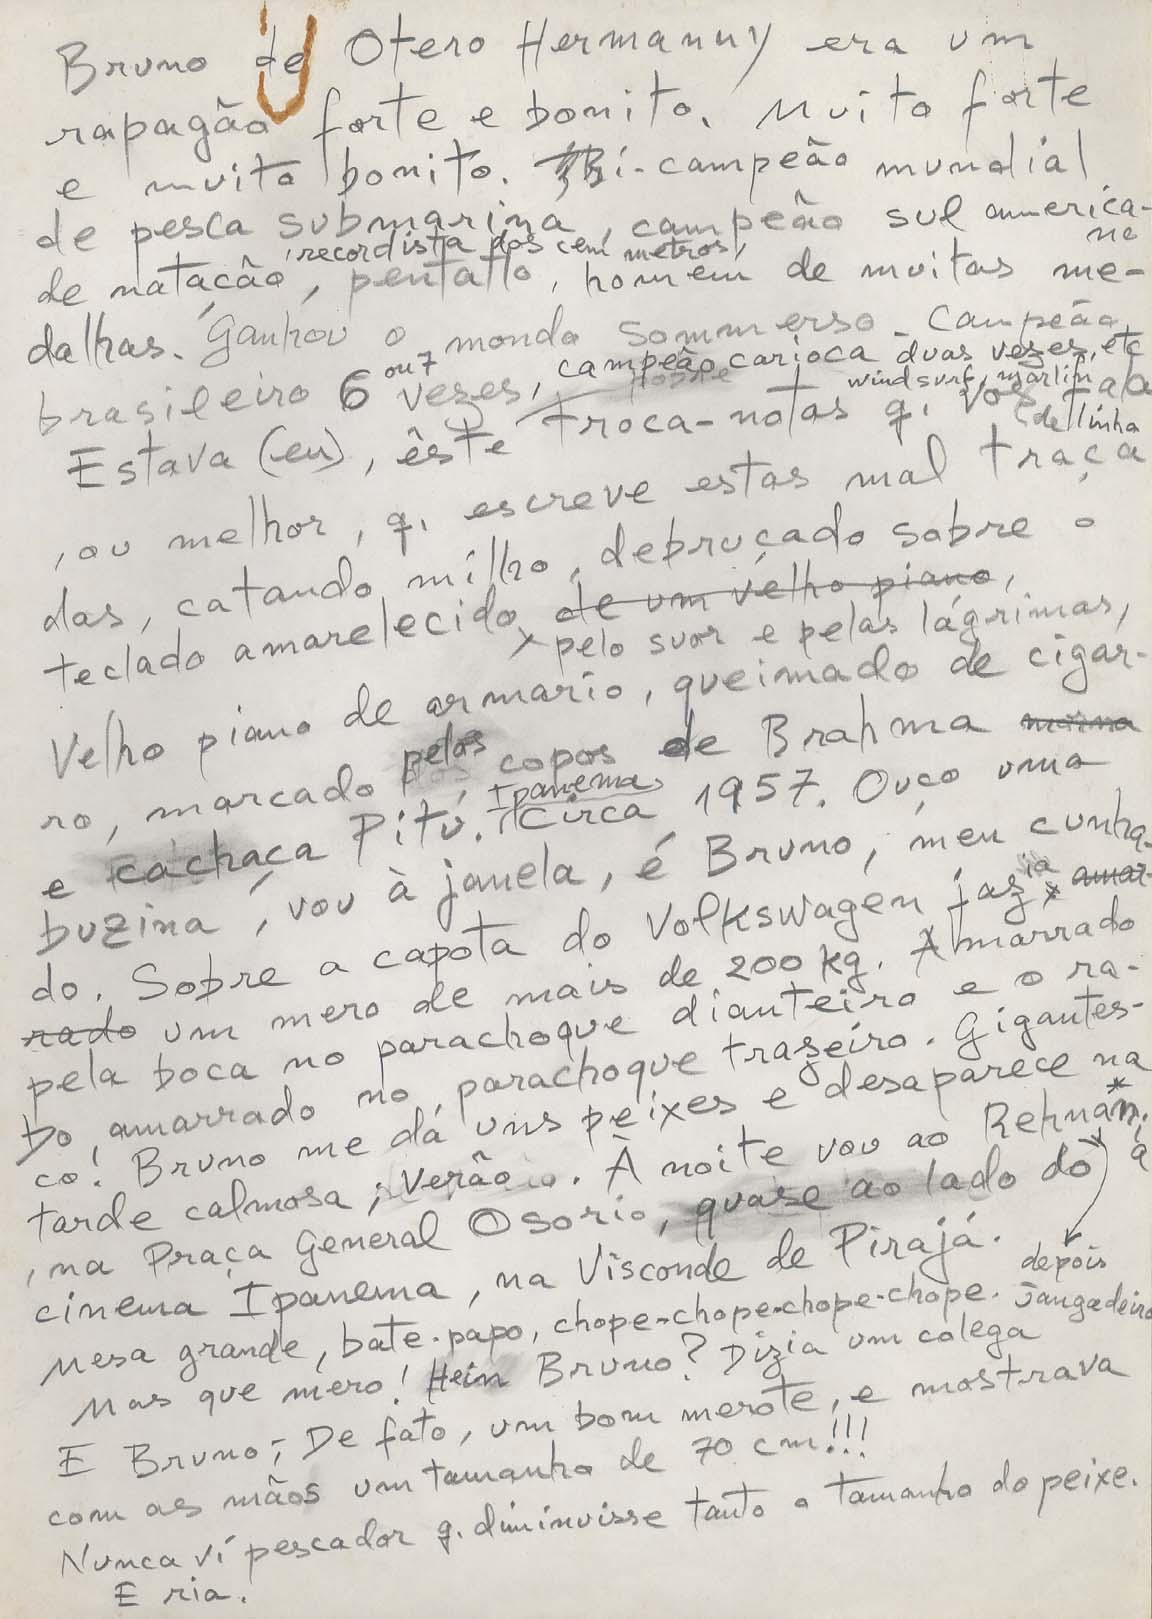 Bruno de Otero Hermanny era um
rapagão forte e bonito. Muito forte
e muito bonito. Bi-campeão mundial
de pesca submarina, campeão sul america-
no
, recordista dos cem metros,
de natação, pentatlo, homem de muitas me-
dalhas. Ganhou o mondo sommerso. Campeão
ou 7 campeão carioca duas vezes, etc
brasileiro 6 vezes, windsurf, marlin
de linha
Estava (eu), êste troca-notas q. vos fala
, ou melhor, q. escreve estas mal traça
das, catando milho, debruçado sobre o
teclado amarelecido de um velho piano,
pelo suor e pelas lágrimas,
Velho piano de armario, queimado de cigar-
ro, marcado pelos copos de Brahma
e cachaça Pitú. Ipanema, Circa 1957. Ouço uma
buzina, vou à janela, é Bruno, meu cunha-
do. Sobre a capota do Volkswagen jazia amar-
rado um mero de mais de 200 kg. Amarrado
pela boca no parachoque dianteiro e o ra-
bo, amarrado no parachoque trazeiro. Gigantes-
co! Bruno me dá uns peixes e desaparece na
tarde calmosa, verão. À noite vou ao Rehnânia
, na Praça General Osorio, quase ao lado do
cinema Ipanema, na Visconde de Pirajá.
depois
Jangadeiro
Mesa grande, bate-papo, chope-chope-chope-chope.
Mas que mero! Hein Bruno? Dizia um colega
E Bruno; De fato, um bom merote, e mostrava
com as mãos um tamanho de 70 cm!!!
Nunca ví pescador q. diminuisse tanto o tamanho do peixe.
E ria.